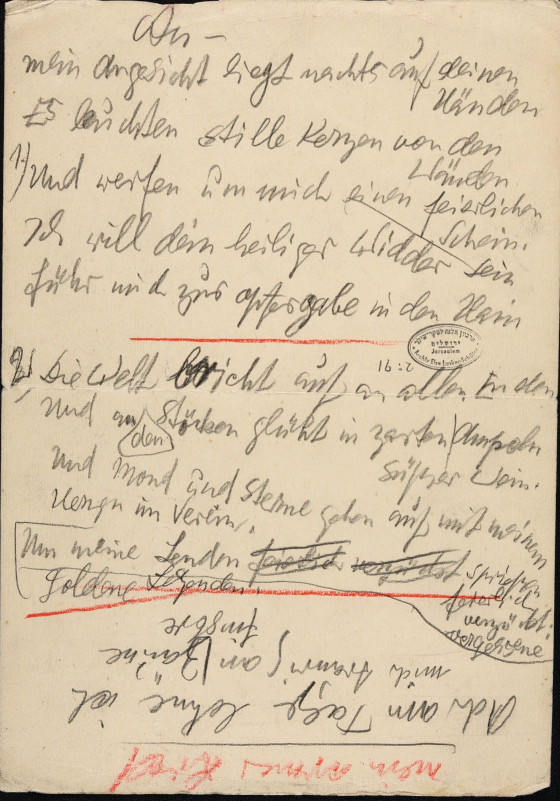 An –
mein Angesicht liegt nachts auf deinen
Händen
Es leuchten stille Kerzen von den
Wänden
1.) Und werfen um mich einen feierlichen
Schein.
Ich will dein heiliger Widder sein
Führ mich zur Opfergabe in den Hain
Jerusalem
2:91
2.) Die Welt bricht auf an allen Enden
Und an den Stöcken glüht in zarten Ampeln
Süßer Wein.
Und Mond und Sterne gehen auf mit meinem
Herzen im Verein.
Um meine Lenden feierlich verzückt sprießen
feierlich
verzückt
vergessene
Goldene Legenden.
mein armes
Ach am Tage lehne ich
mich traurig an Zäune